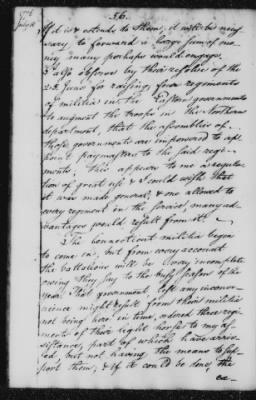 1776
July 11
56.
If it is extended to them, it will be necess-
ary to forward a large sum of mo-
ney many perhaps would engage,
I also observe by their resolve of the
25 June for raising four regiments
of militia in the Eastern governments
to augment the troops in the Northern
department, that the assemblies of
those governments are impowered to ap-
point paymasters to the said regi-
ments; this appears to me a regula-
tion of great use & I could wish that
it was made general, & one allowed to
every regiment in the service many ad-
vantages would result from it.
The Connecticut militia began
to come in, but from every account
the battalions will be very incomplete
owing they say to the busy season of the
year. That government, lest any inconve-
nience might result from their militia
not being here in time, ordered three regi-
ments of their light horse to my as-
sistance, part of which have arriv-
ed, but not having the means to sup-
port them, & if it could be done, the